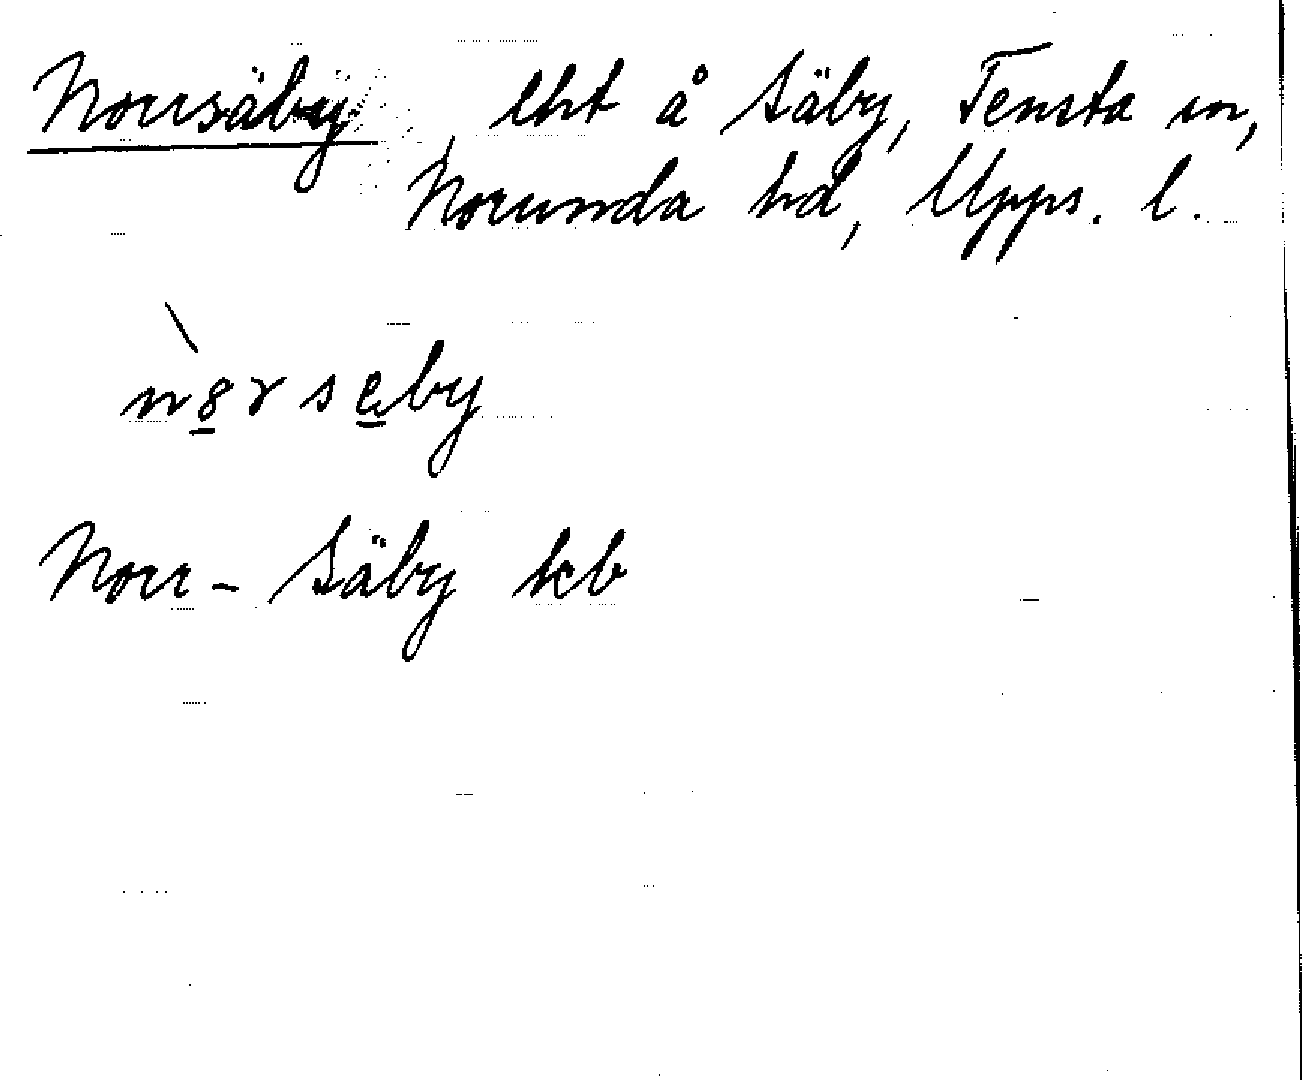 Norrsäby, lht å Säby, Tensta sn,
Norunda hd, Upps. l.
n8rseby
Norr-Säby kb